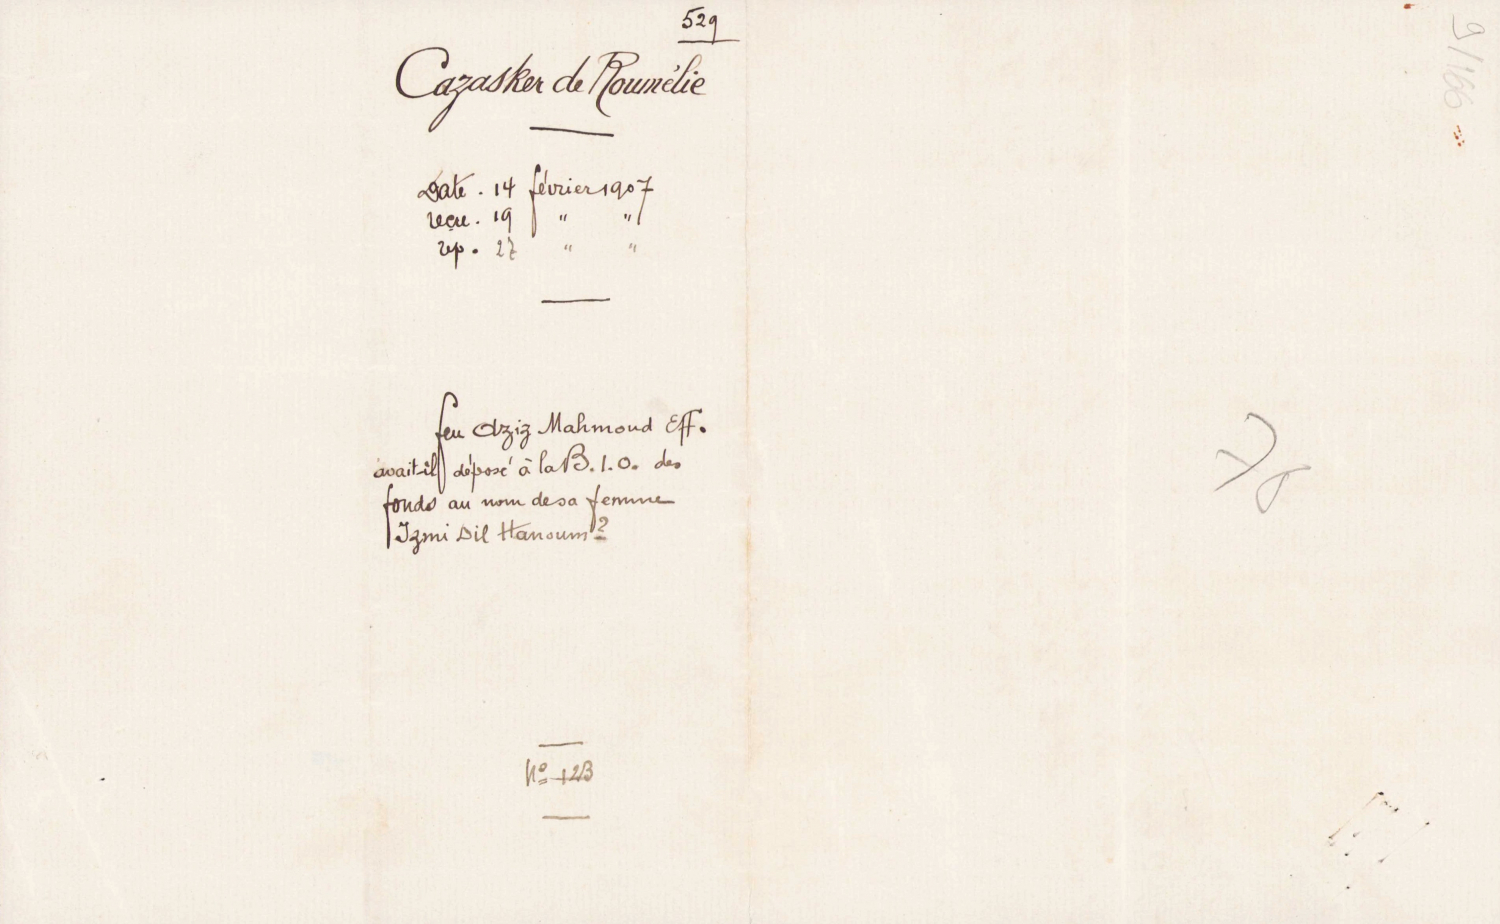 529
Cazasker de Roumélie
Date . 14 février 1907
reçu . 19 " "
rép . 27 " "
feu Aziz Mahmoud Eff.
avait-il déposé à la B.I.O. des
fonds au nom de sa femme
Izmi Dil Hanoum?
Nº
9/166